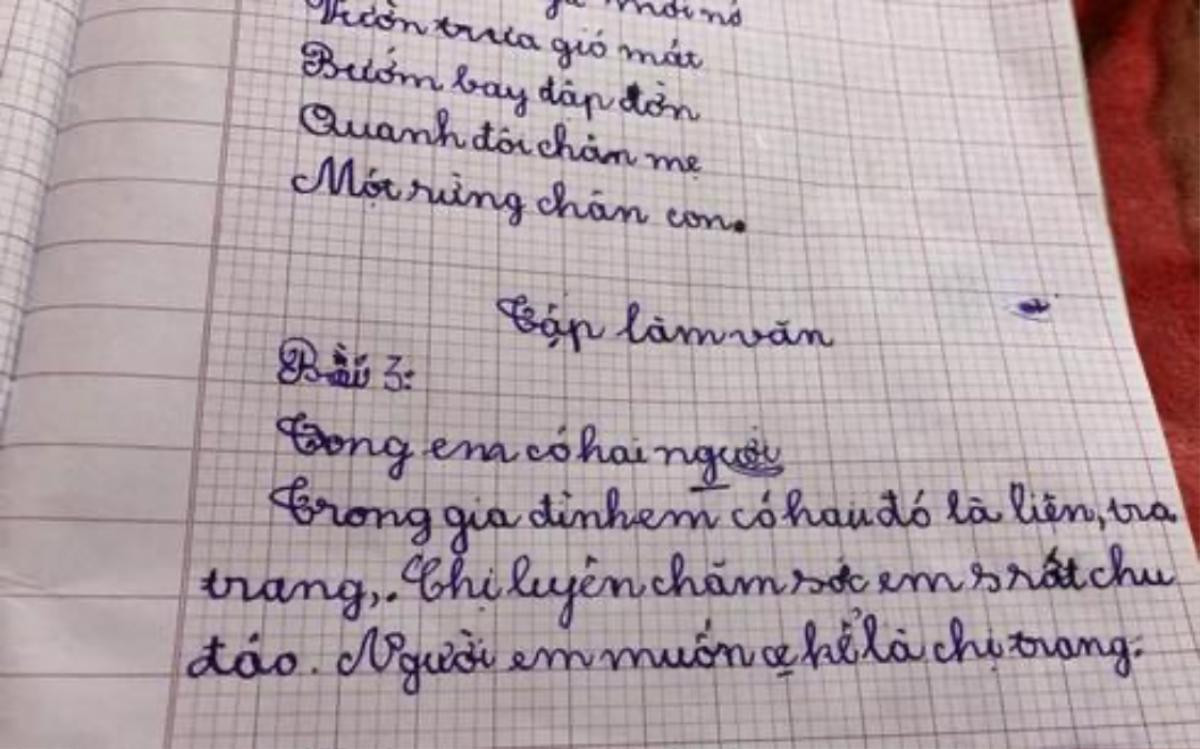 mới nở
Vườn trưa gió mát
Bướm bay dập dờn
Quanh đôi chân mẹ
Một rừng chân con.
Tập làm văn
Bài 3:
Tong em có hai người
Trong gia đình em có hau đó là liên, tra
trang,. Chị luyên chăm sóc em s rất chu
đáo. Người em muốn ạ kể là chị trang.